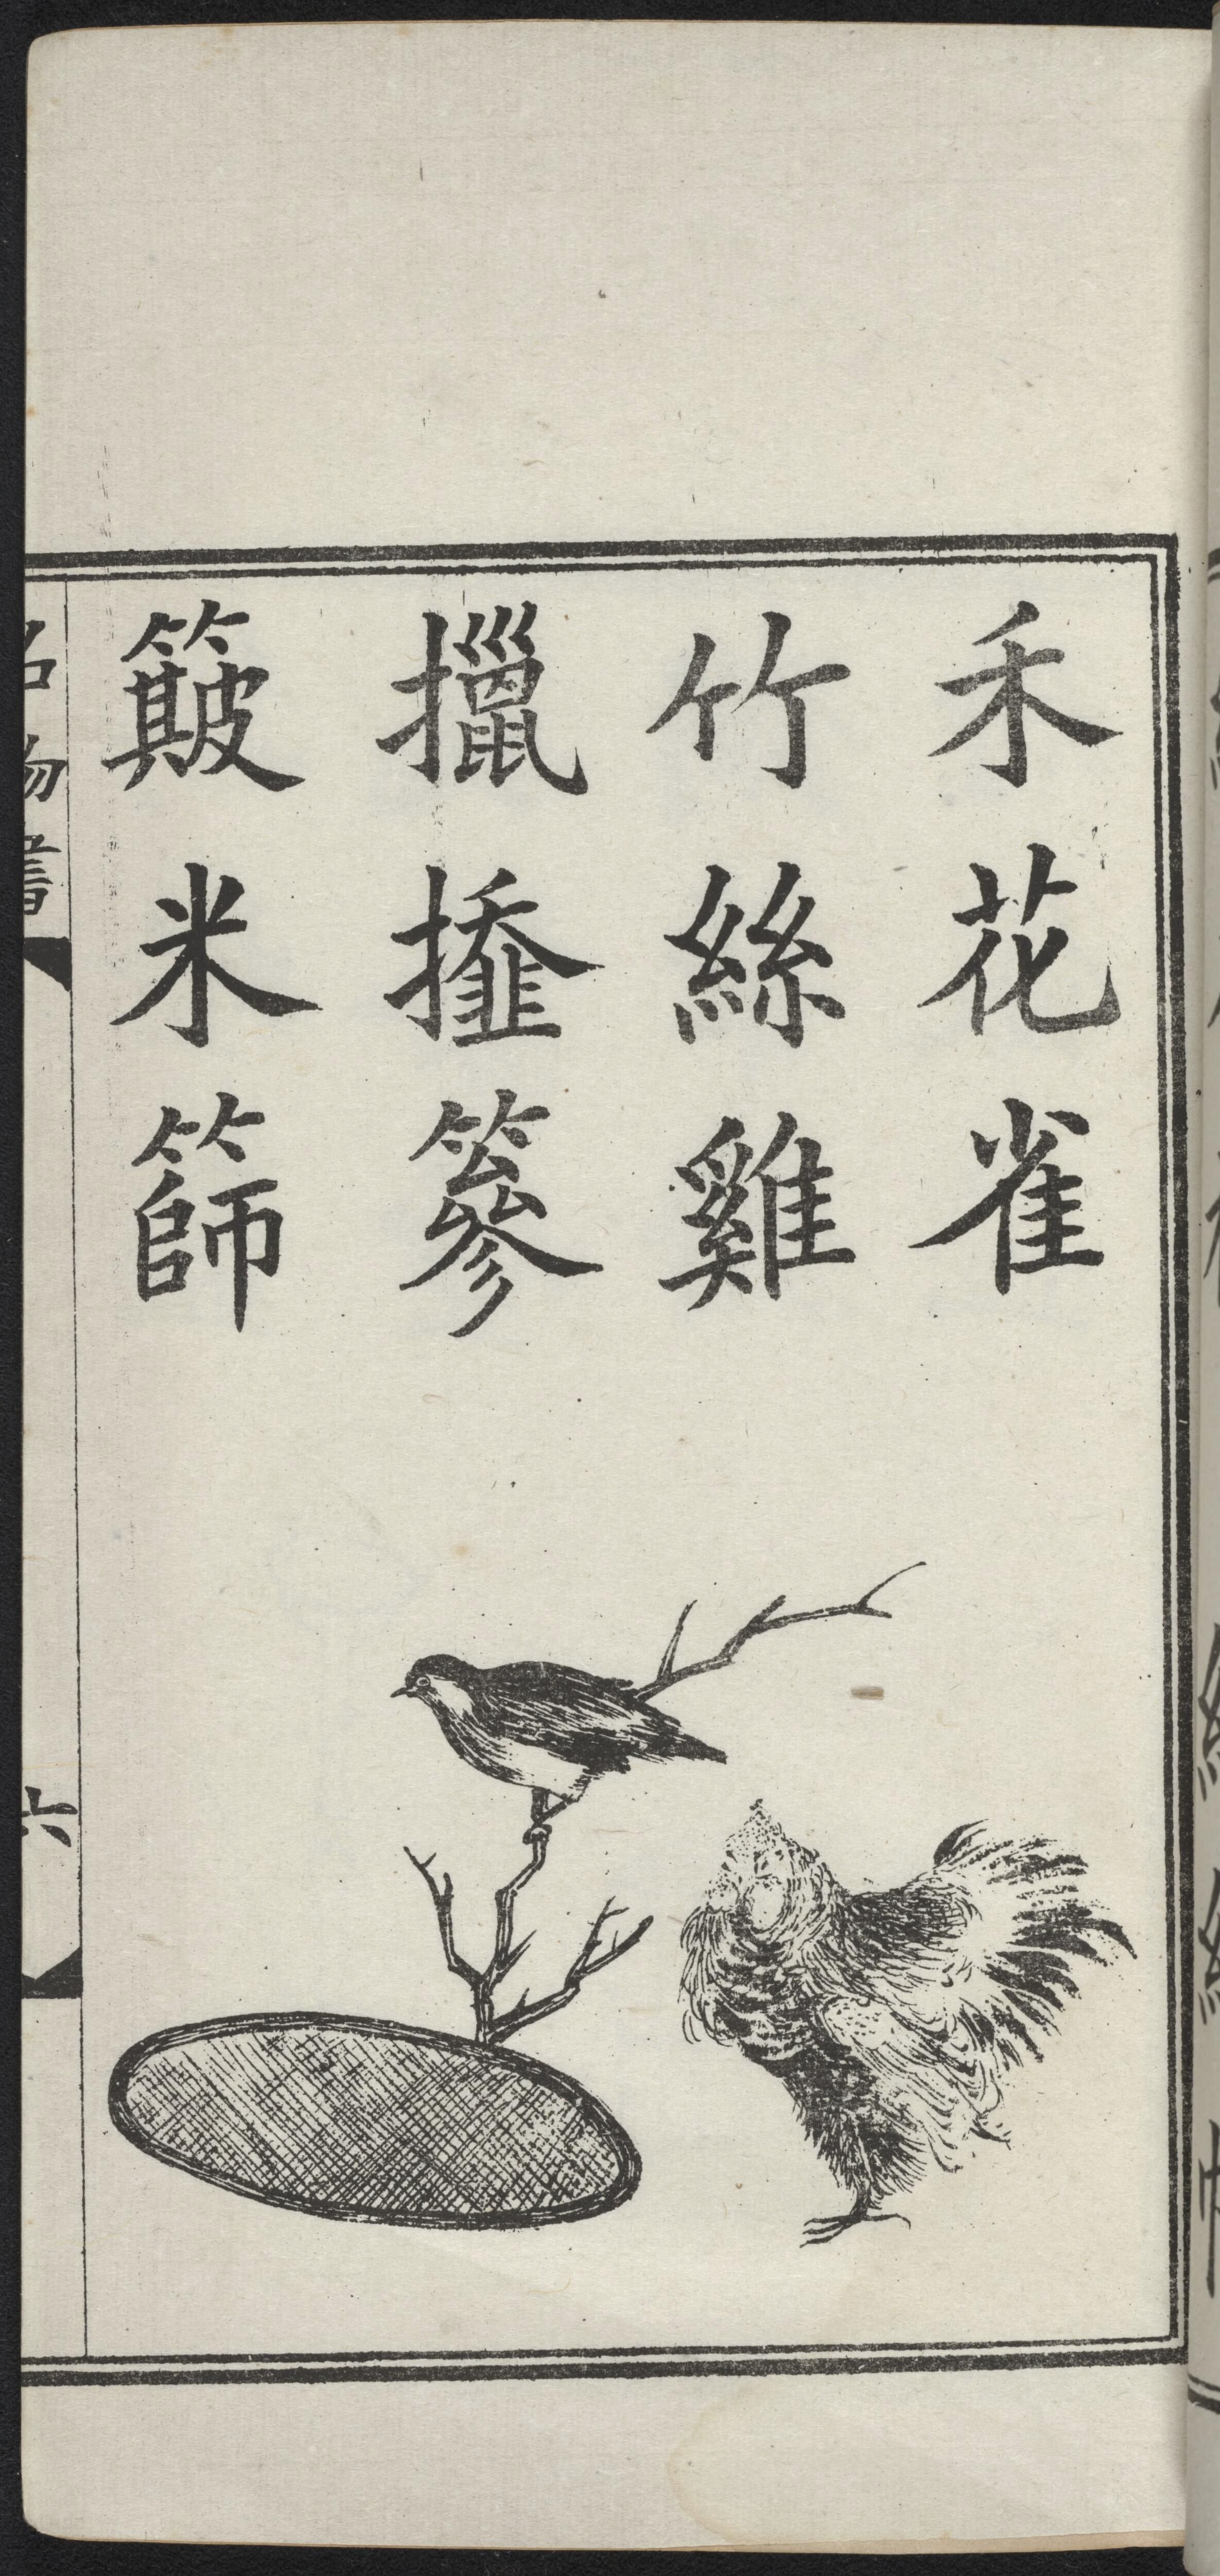 禾花雀
竹絲雞
擸㩓篸
簸米篩
名物書
六